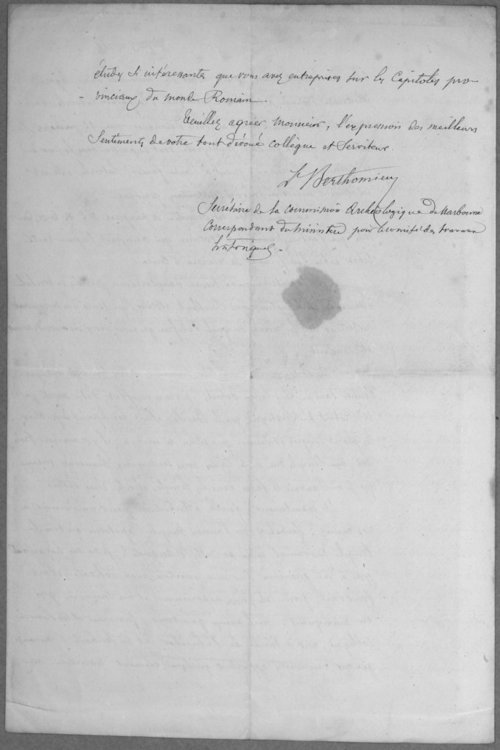 études si intéressantes que vous avez entreprises sur les Capitoles pro
- vinciaux du monde Romain.
Veuillez agréer, Monsieur, l'expression des meilleurs
sentiments de votre tout dévoué collègue et Serviteur
L. Berthomieu
Secrétaire de la Commission Archéologique de Narbonne
Correspondant du Ministère pour le comité des travaux
historiques -